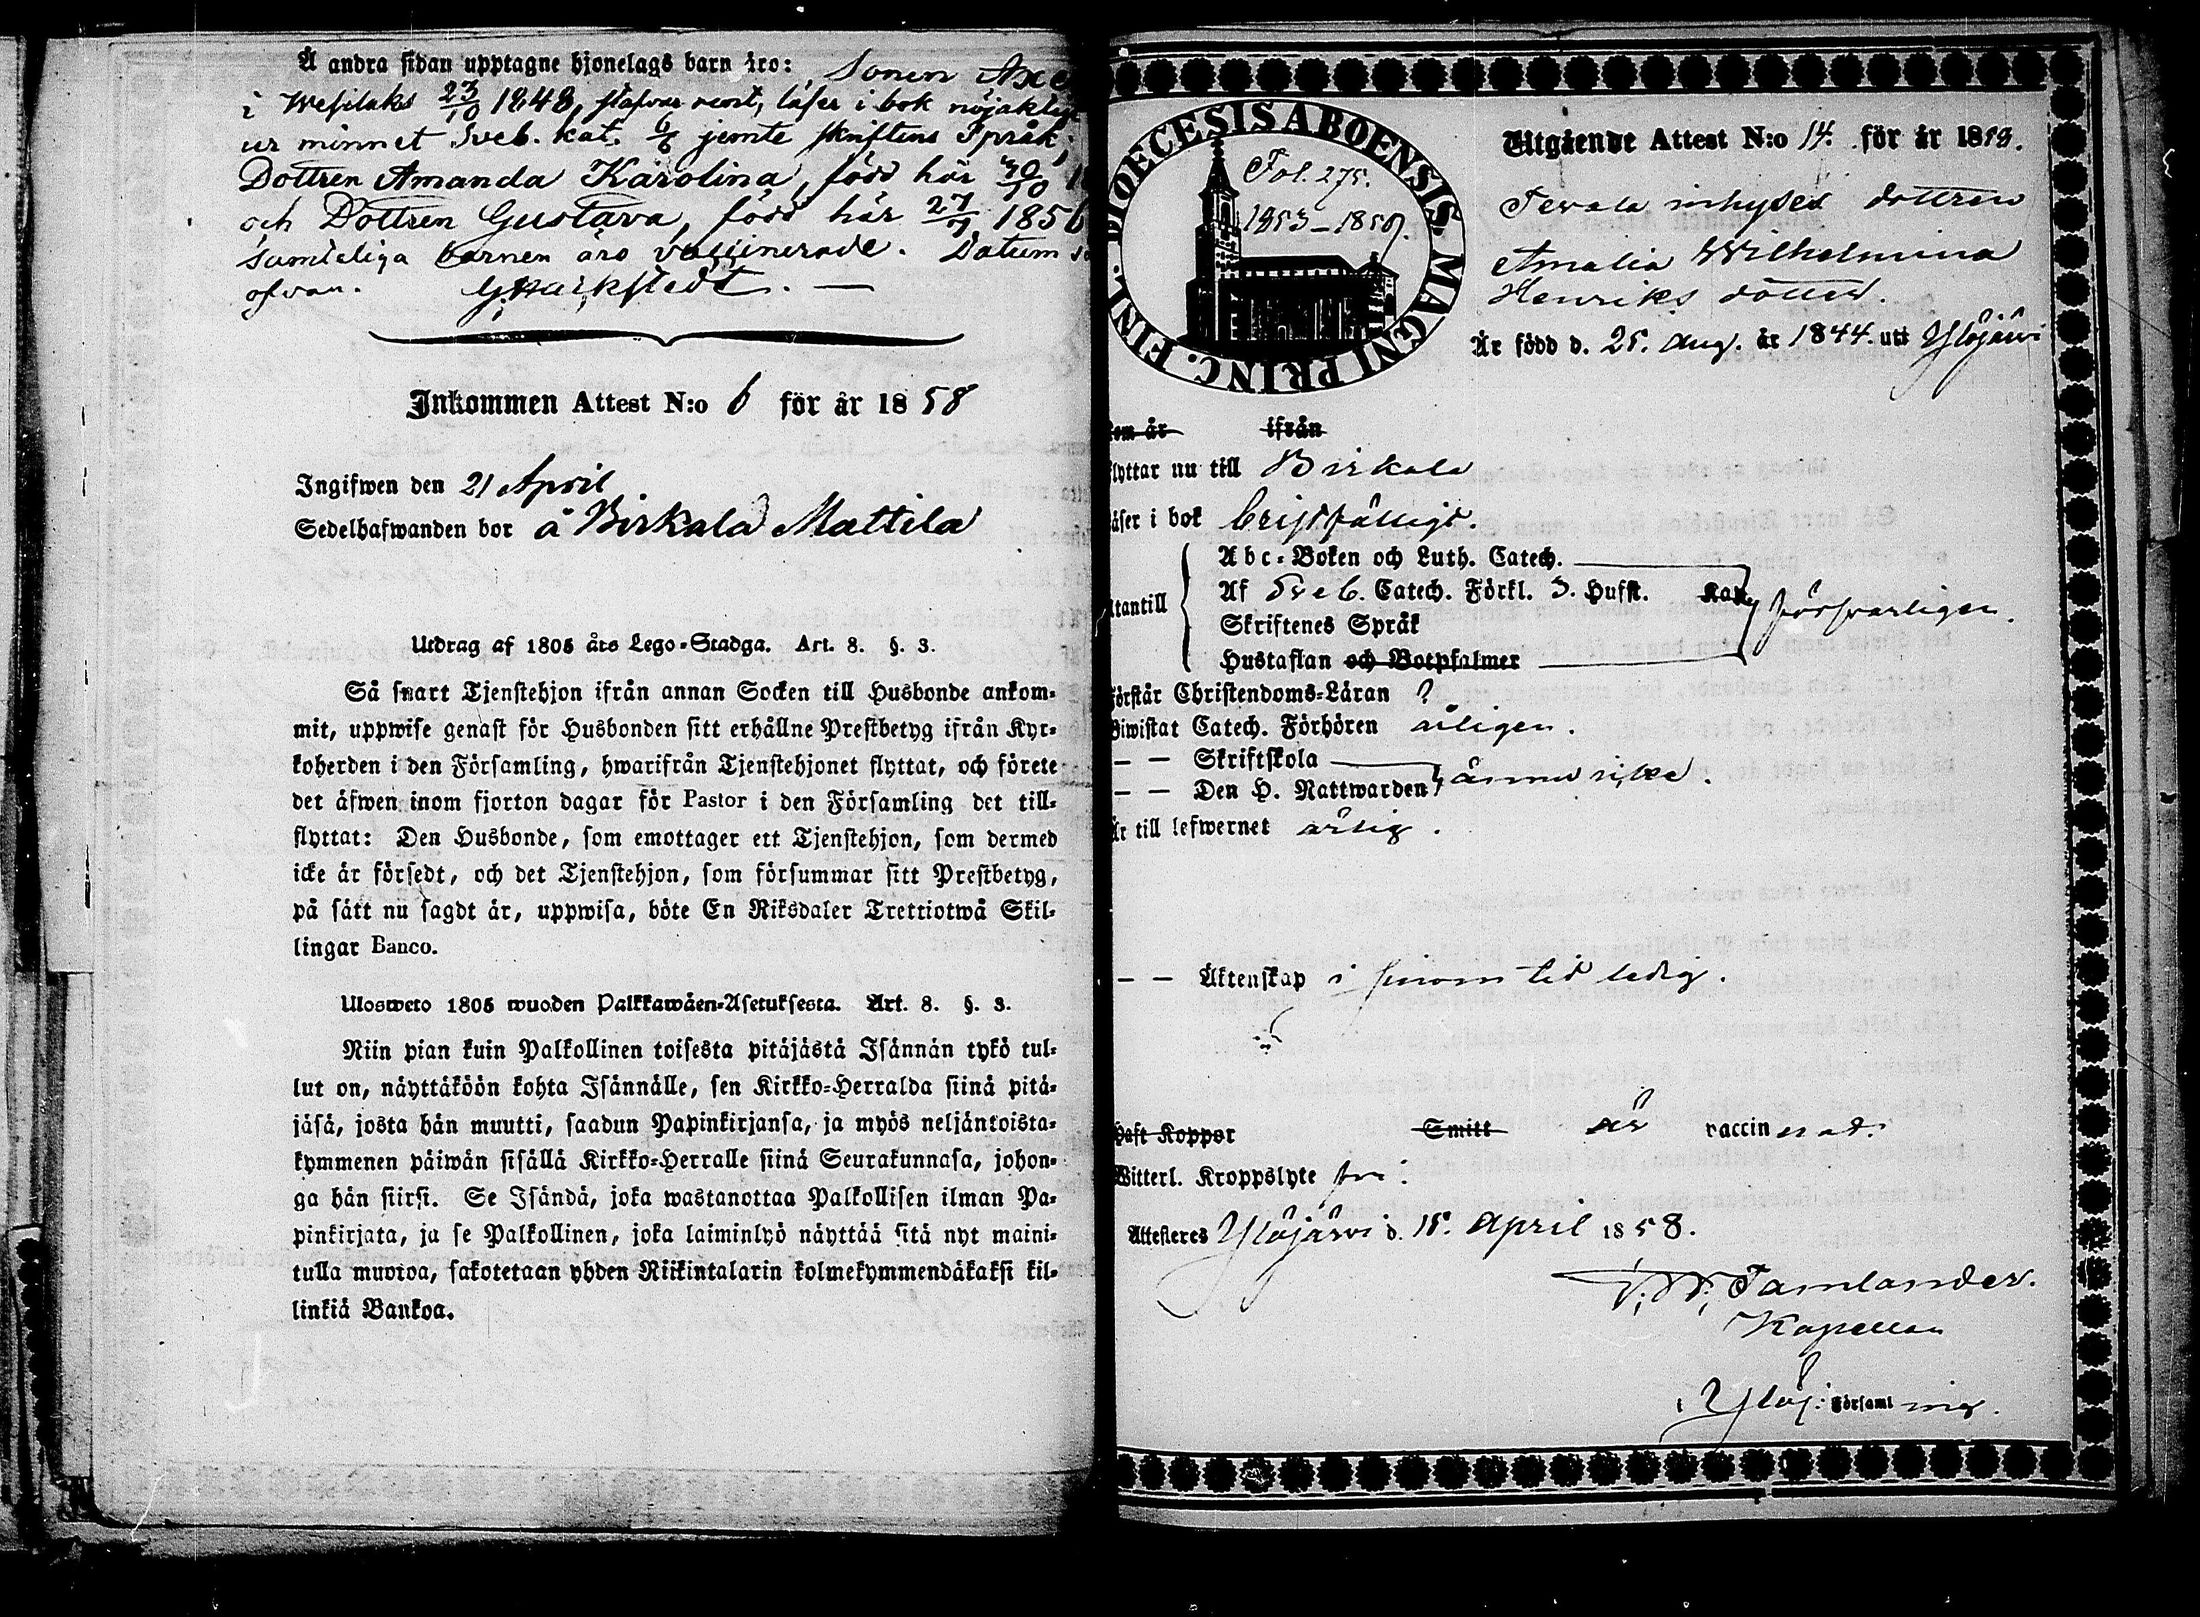 Å andra sidan upptagne hjonelags barn äro: Sonen Axe
i Wesilaks 23/10 1848, läser i bok nöjaktigt
ur minnet Sveb. kat. jemte skriftens Språk;
Dottren Amanda Karolina, född här 30/10
och Dottren Gustava, född här 27/9 1856
samteliga barnen äro vaccinerade. Datum
ofvan.
Inkommen Attest N:o 6 för år 1858
Ingifwen den 21 April
Sedelhafwanden bor å Birkala Mattila
Utdrag af 1805 års Lego-Stadga. Art. 8. §. 3.
Så snart Tjenstehjon ifrån annan Socken till Husbonde ankom-
mit, uppwise genast för Husbonden sitt erhållne Prestbetyg ifrån Kyr-
koherden i den Församling, hwarifrån Tjenstehjonet flyttat, och förete
det äfwen inom fjorton dagar för Pastor i den Församling det till-
flyttat: Den Husbonde, som emottager ett Tjenstehjon, som dermed
icke är försedt, och det Tjenstehjon, som försummar sitt Prestbetyg,
på sätt nu sagdt är, uppwisa, böte En Riksdaler Trettiotwå Skil-
lingar Banco.
Ulosweto 1805 wuoden Palkkawäen-Asetuksesta. Art. 8. §. 3.
Niin pian kuin Palkollinen toisesta pitäjästä Isännän tykö tul-
lut on, näyttäköön kohta Isännälle, sen Kirkko-Herralda siinä pitä-
jäsä, josta hän muutti, saadun Papinkirjansa, ja myös neljäntoista-
kymmenen päiwän sisällä Kirkko-Herralle siinä Seurakunnasa, johon-
ga hän siirsi. Se Isändä, joka wastanottaa Palkollisen ilman Pa-
pinkirjata, ja se Palkollinen, joka laiminlyö näyttää sitä nyt maini-
tulla muotoa, sakotetaan yhden Riikintalarin kolmekymmendäkaksi kil-
linkiä Bankoa.
DIOECESIS ABOENSIS MAGNI PRINC. FINL.
Fol. 275.
1853-1859.
Utgående Attest N:o 14. för år 1858.
inhyses dottren
Amalia Wilhelmina
Henriks dotter.
Är född d. 25. Aug. år 1844. uti Ylöjärvi
kom år ifrån
flyttar nu till Birkala
läser i bok bristfälligt.
Utantill
Abc-Boken och Luth. Catech.
Af Sveb. Catech. Förkl. 3. Hufst. Kap. försvarligen.
Skriftenes Språk
Hustaflan och Botpsalmer
Förstår Christendoms-Läran ?
Biwistat Catech. Förhören årligen.
— — Skriftskola
— — Den H. Nattwarden ännu icke.
Är till lefwernet ärlig.
— — Äktenskap i sinom tid ledig.
Haft Koppor Smitt är vaccinerad.
Witterl. Kroppslyte fri.
Attesteres Ylöjärvi d. 15. April 1858.
Tamlander.
Kapellan
i Ylöj. Församl ing.